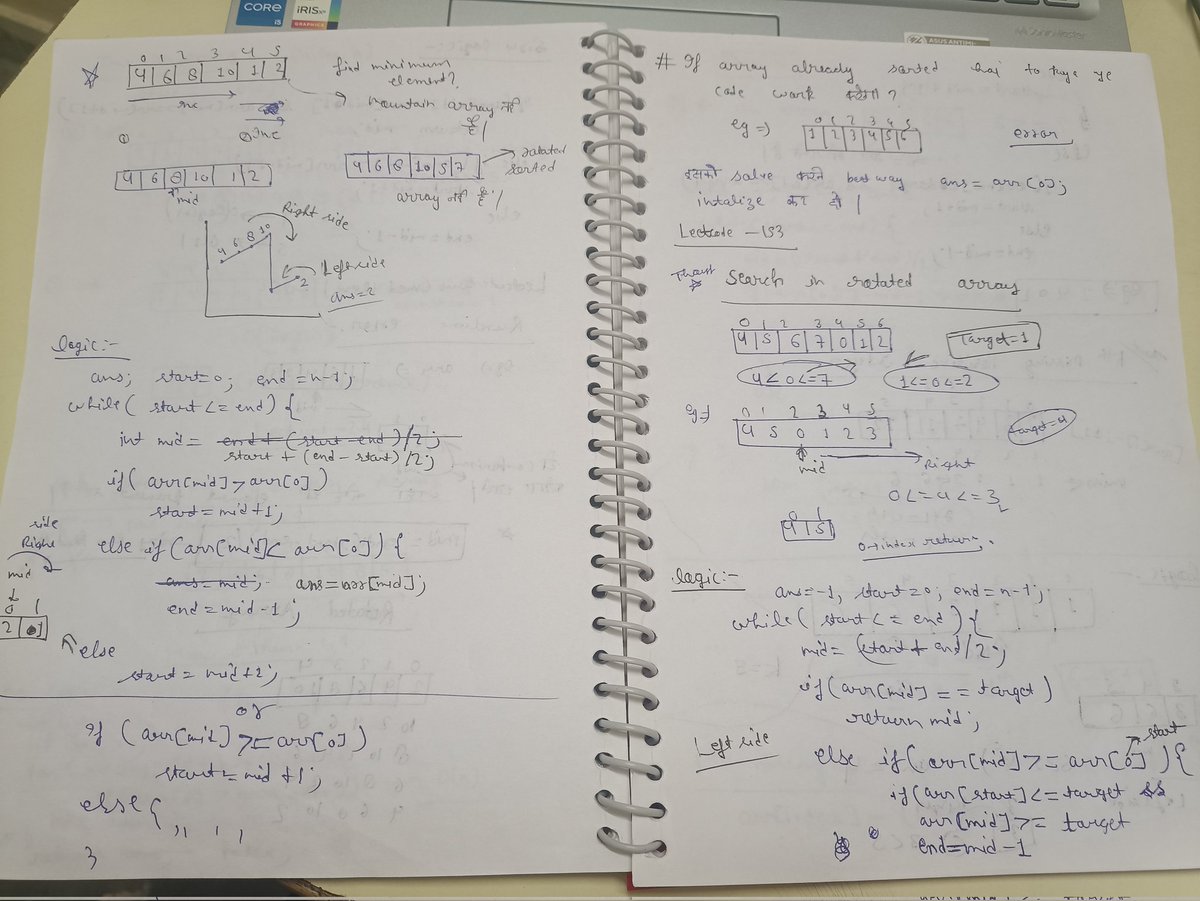 CORE
i5
iRIS
GRAPHICS
0 1 2 3 4 5
4 6 8 10 1 2
find minimum
element?
inc
mountain array नहीं
है।
① ② Inc
4 6 8 10 1 2
mid
4 6 8 10 5 7
rotated
sorted
array नहीं है।
Right side
4 6 8 10
Left side
2
ans=2
logic:-
ans; start=0; end=n-1;
while( start<=end) {
int mid = end + (start-end)/2;
start + (end-start)/2;
if( arr[mid]>arr[0])
start=mid+1;
else if(arr[mid]< arr[0]) {
ans=mid; ans=arr[mid];
end=mid-1;
side
Right
mid
0 1
2
else
start=mid+2;
or
if (arr[mid] >=arr[0])
start=mid+1;
else{
,, , ,
}
# If array already sorted hai to kya ye
code work करेगा?
0 1 2 3 4 5
eg => 1 2 3 4 5 6
error
इसको solve करने best way ans = arr[0];
intalize कर दो।
Leetcode - 153
Search in rotated array
0 1 2 3 4 5 6
4 5 6 7 0 1 2
Target=1
4<0<=7 1<=0<=2
0 1 2 3 4 5
eg=> 4 5 0 1 2 3
target=4
mid Right
0<=4<=3
0 1
4 5
0→index return.
logic:-
ans=-1, start=0; end=n-1;
while( start<=end ){
mid= (start+ end/2;
if(arr[mid] == target)
return mid;
start
Left side
else if( arr[mid]>= arr[0] ){
if(arr[start]<=target &&
arr[mid]>= target
end=mid-1